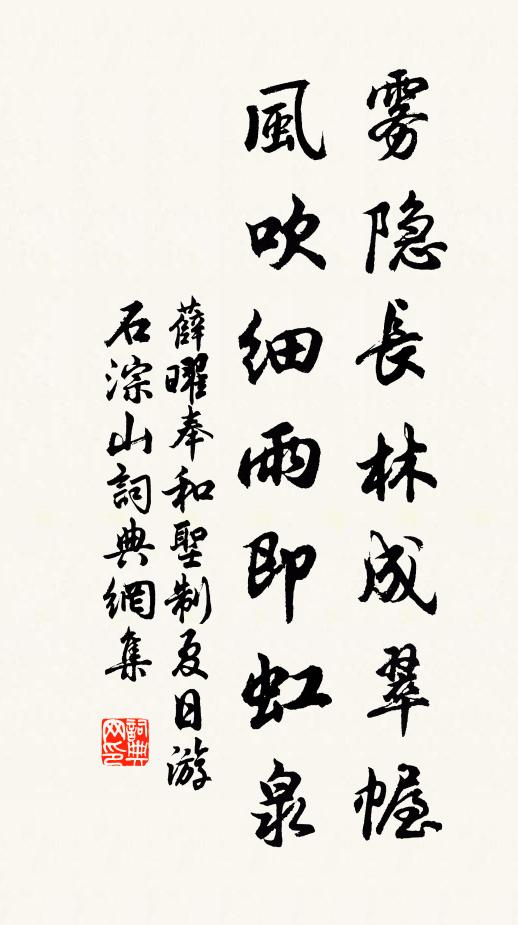 雾隐長林成翠幄
風吹细雨即虹泉
薛曜奉和聖制夏日游
石淙山詞典網集
詞典網印